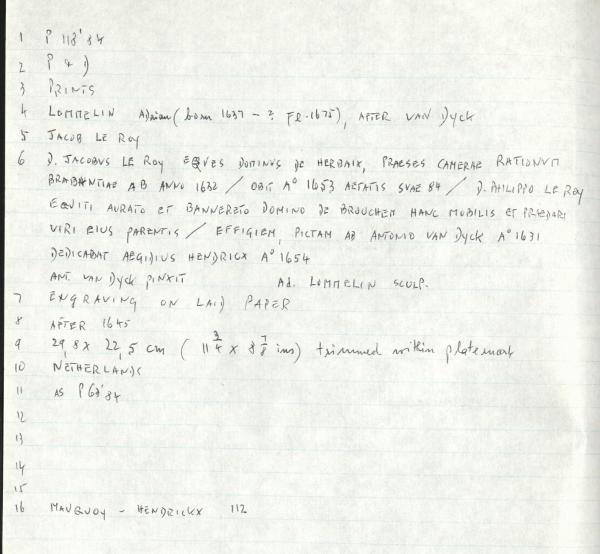 1 P 118'84
2 P 4 D
3 PRINTS
4 LOMMELIN Adriaan (born 1637 - ? Fl. 1675), AFTER VAN DYCK
5 JACOB LE ROY
6 D. JACOBVS LE ROY EQVES DOMINVS DE HERBAIX, PRAESES CAMERAE RATIONVM
BRABANTIAE AB ANNO 1632 / OBIT A° 1653 AETATIS SVAE 84 / D. PHILIPPO LE ROY
EQVITI AURATO ET BANNERETO DOMINO DE BROUCHEM HANC NOBILIS ET PRAEDARI
VIRI EIUS PARENTIS / EFFIGIEM, PICTAM AB ANTONIO VAN DYCK A° 1631
DEDICABAT AEGIDIUS HENDRICX A° 1654
ANT. VAN DYCK PINXIT Ad. LOMMELIN SCULP.
7 ENGRAVING ON LAID PAPER
8 AFTER 1645
9 29,8 x 22,5 cm ( 11 3/4 x 8 7/8 ins) trimmed within platemark
10 NETHERLANDS
11 AS P 67'84
12
13
14
15
16 MAUQUOY - HENDRICKX 112